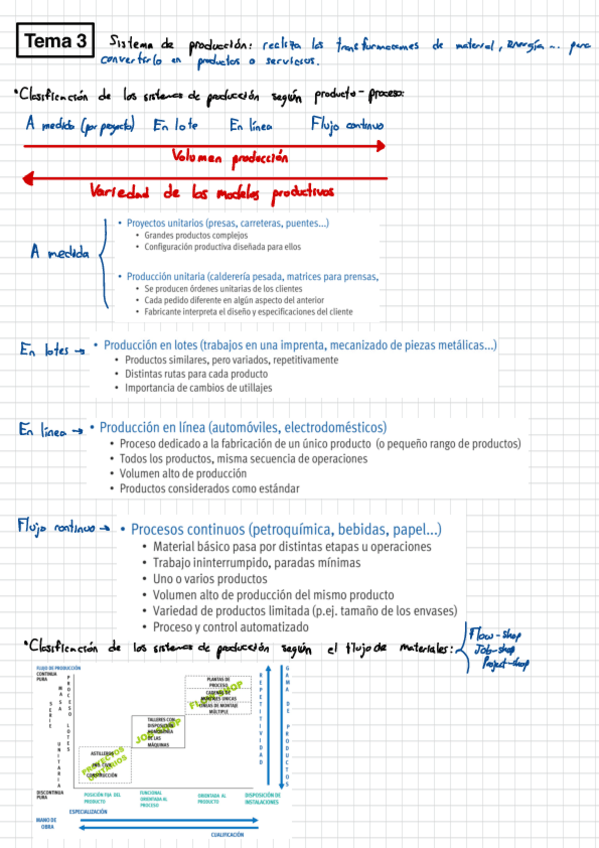 Tema 3
Sistema de producción: realiza las transformaciones de material, energía... para
convertirlo en productos o servicios.
•Clasificación de los sistemas de producción según producto-proceso:
A medida (por proyecto) En lote En línea Flujo continuo
Volumen producción
Variedad de los modelos productivos
A medida
• Proyectos unitarios (presas, carreteras, puentes...)
• Grandes productos complejos
• Configuración productiva diseñada para ellos
• Producción unitaria (calderería pesada, matrices para prensas,
• Se producen órdenes unitarias de los clientes
• Cada pedido diferente en algún aspecto del anterior
• Fabricante interpreta el diseño y especificaciones del cliente
En lotes → • Producción en lotes (trabajos en una imprenta, mecanizado de piezas metálicas...)
• Productos similares, pero variados, repetitivamente
• Distintas rutas para cada producto
• Importancia de cambios de utillajes
En línea → • Producción en línea (automóviles, electrodomésticos)
• Proceso dedicado a la fabricación de un único producto (o pequeño rango de productos)
• Todos los productos, misma secuencia de operaciones
• Volumen alto de producción
• Productos considerados como estándar
Flujo continuo → • Procesos continuos (petroquímica, bebidas, papel...)
• Material básico pasa por distintas etapas u operaciones
• Trabajo ininterrumpido, paradas mínimas
• Uno o varios productos
• Volumen alto de producción del mismo producto
• Variedad de productos limitada (p.ej. tamaño de los envases)
• Proceso y control automatizado
•Clasificación de los sistemas de producción según el flujo de materiales:
Flow-shop
Job-shop
Project-shop
FLUJO DE PRODUCCIÓN
CONTINUA
PURA
MASA
PROCESO
LOTES
SERIE
UNITARIA
PLANTAS DE
PROCESO
FLOW SHOP
LÍNEAS DE MONTAJE
MÚLTIPLE
TALLERES CON
DISPOSICIÓN
DE LAS
MÁQUINAS
JOB SHOP
ASTILLEROS
PROYECTOS
UNITARIOS
CONSTRUCCIÓN
REPETITIVIDAD
GAMA DE PRODUCTOS
DISCONTINUA
PURA
POSICIÓN FIJA DEL
PRODUCTO
FUNCIONAL
ORIENTADA AL
PROCESO
ORIENTADA AL
PRODUCTO
DISPOSICIÓN DE
INSTALACIONES
ESPECIALIZACIÓN
MANO DE
OBRA
CUALIFICACIÓN